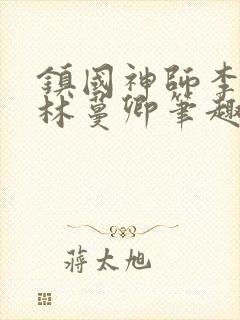 鎮國神師李
林蔓卿筆趣
蔣太旭